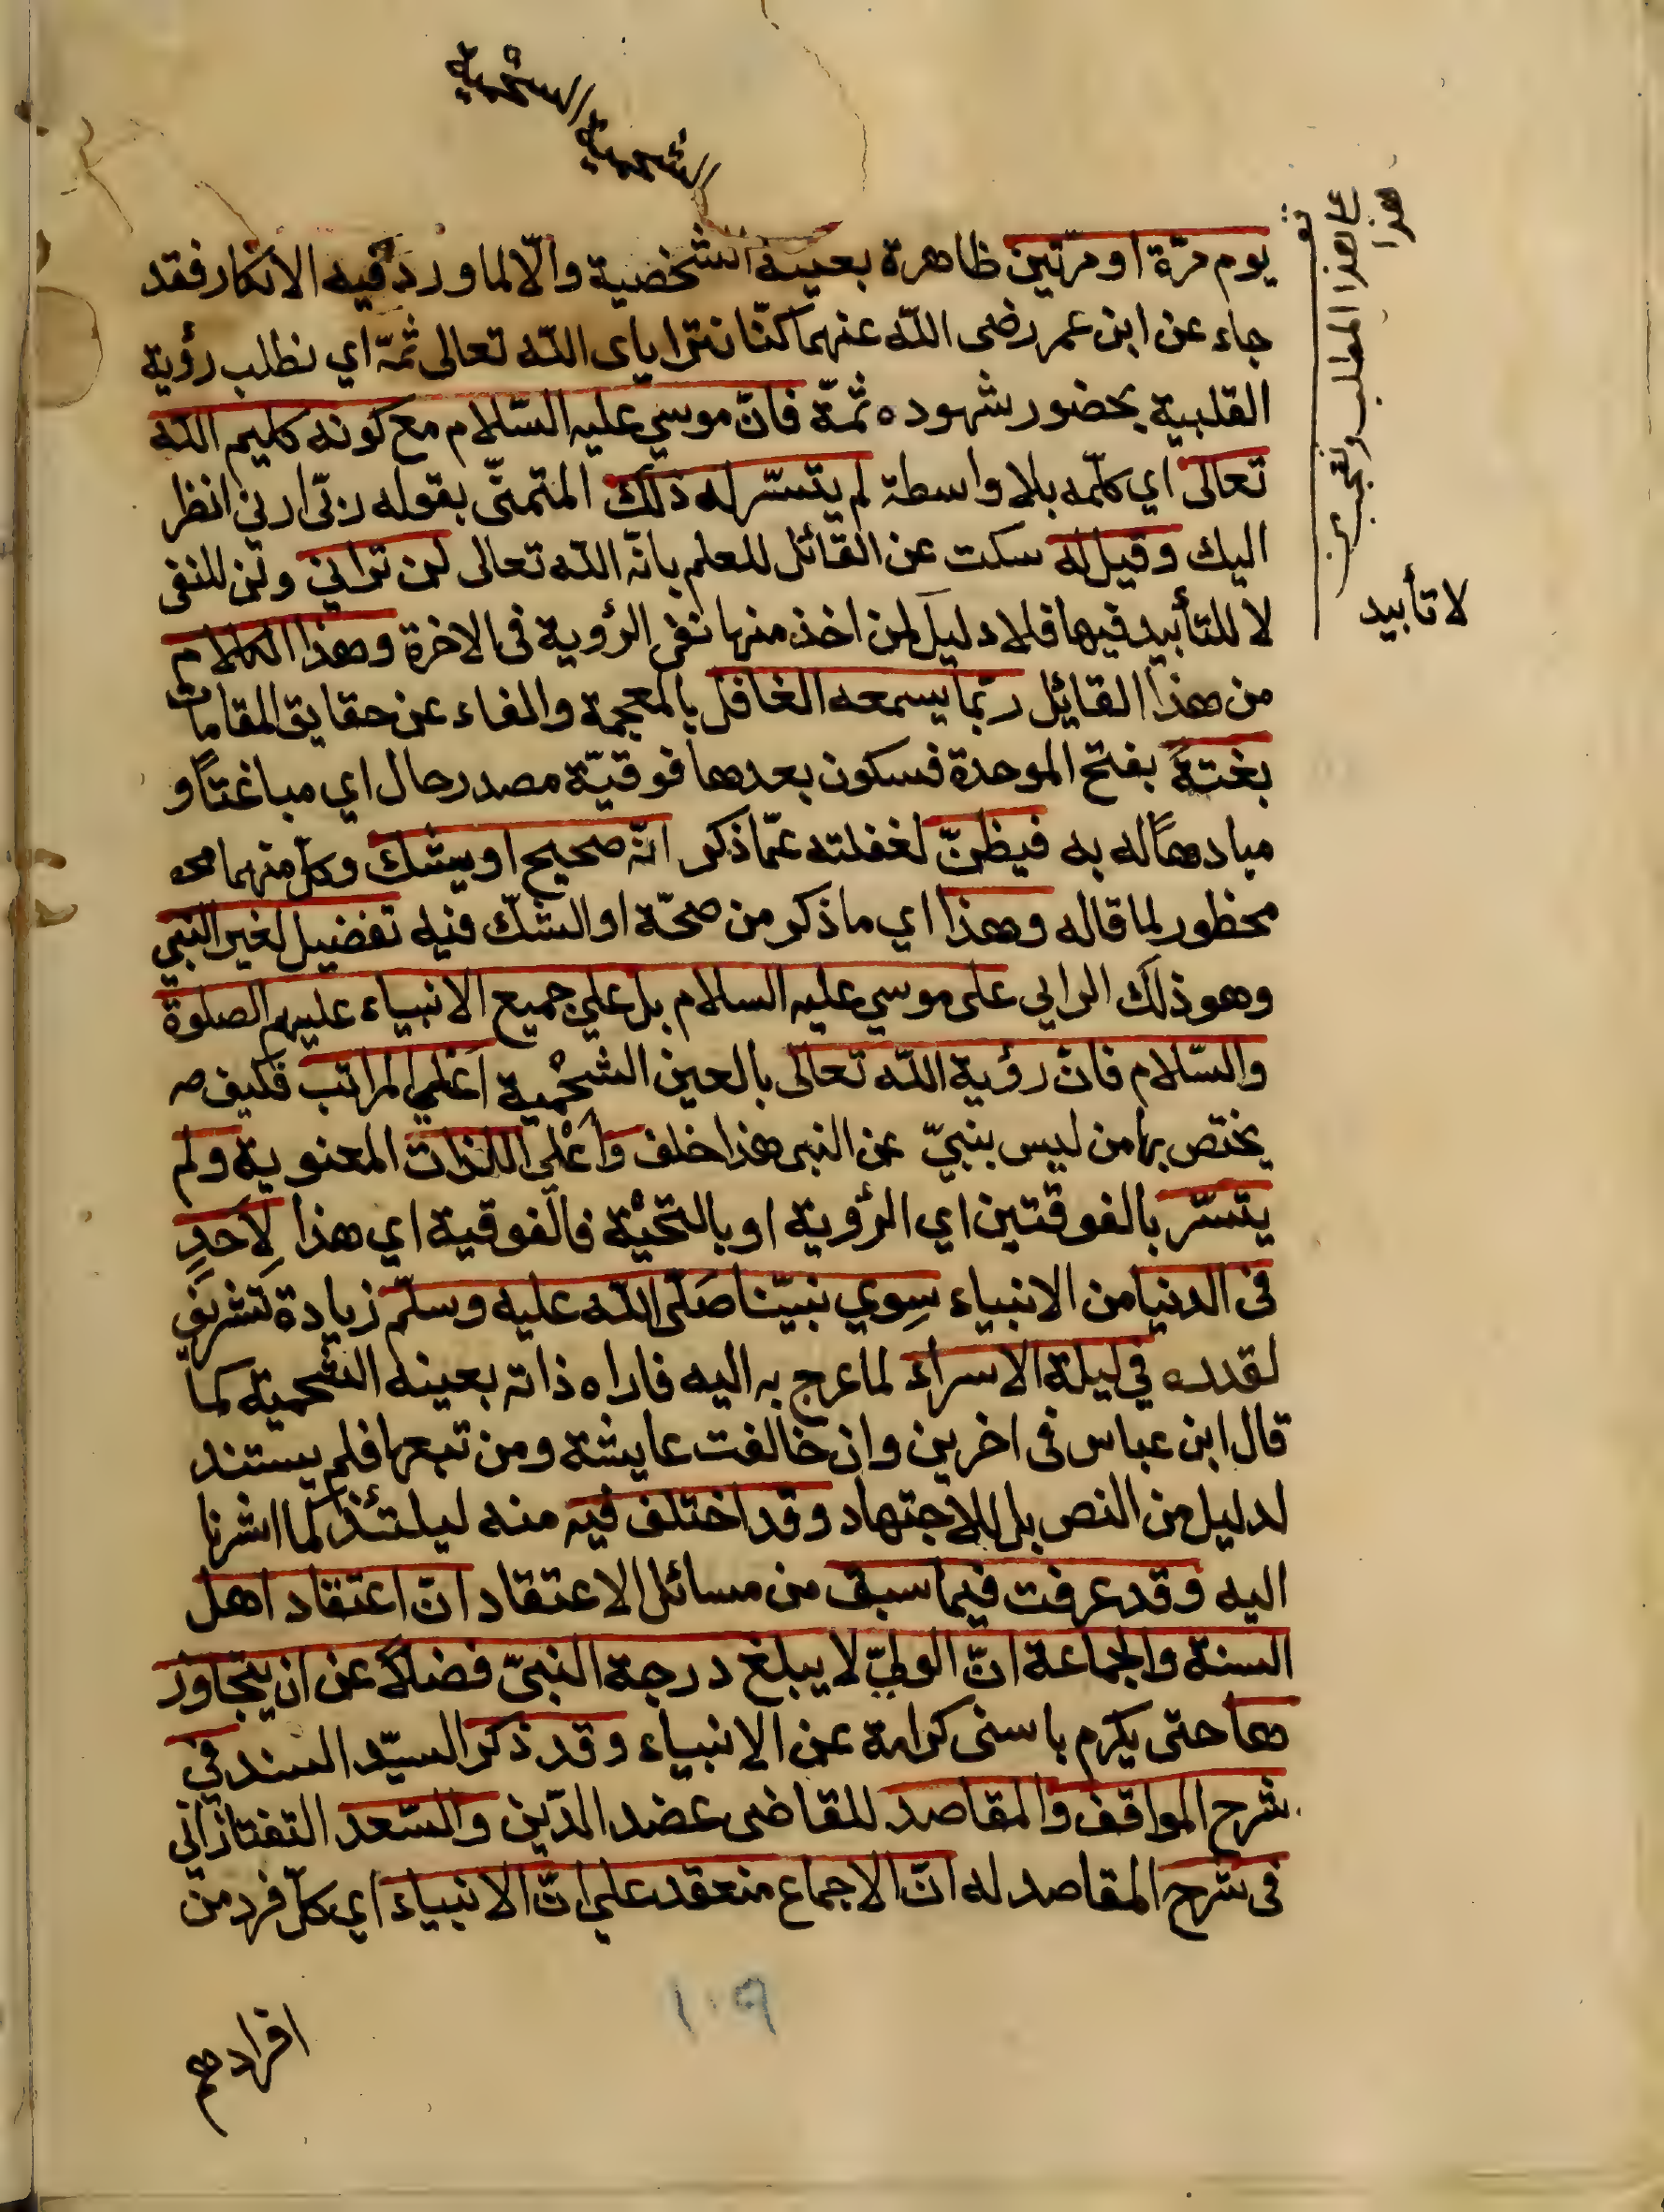 الشحمية
الشحمية
يوم مرّة او مرّتين ظاهرة بعينه الشخصية والّا لما ورد فيه الانكار فقد
جاء عن ابن عمر رضى اللّه عنهما كنّا نترا يا ى اللّه تعالى ثمّة اي نطلب رؤية
القلبية بحضور شهوده ثمّة فانّ موسي عليه السّلام مع كونه كليم اللّه
تعالى اي كلّمه بلا واسطة لم يتسّر له ذلك المتمنّى بقوله ربّى ارني انظر
اليك وقيل له سكت عن القائل للعلم بانّه اللّه تعالى لن تراني ولن للنفى
لا للتأبيد فيها فلا دليل لمن اخذ منها نفى الرؤية فى الاخرة وهذا الكلام
من هذا القائل ربّما يسمعه الغافل بالمعجمة والفاء عن حقايق المقامات
بغتةً بفتح الموحدة فسكون بعدها فوقيّة مصدر حال اي مباغتًا و
مبادهًا له به فيظنّ لغفلته عمّا ذكر انّه صحيح او يشك وكلّ منهما مح
محظور لما قاله وهذا اي ما ذكر من صحّة او الشك فيه تفضيل لغير النبي
وهو ذلك الرايي على موسي عليه السلام بل علي جميع الانبياء عليهم الصلوة
والسّلام فانّ رؤية اللّه تعالى بالعين الشحْمية اعْلي المراتب فكيف
يختص بها من ليس بنبيّ عن النبى هذا خلف وأعْلى اللذات المعنوية ولم
يتسّر بالفوقتين اي الرؤية او بالتحيْة فالفوقية اي هذا لِاَحَدٍ
فى الدنيا من الانبياء سِوي نبيّنا صَلّى اللّه عليه وسلّم زيادة تشريفٍ
لقدره في ليلة الاسراء لما عرج به اليه فاراه ذاته بعينه الشحمية كما
قال ابن عباس فى اخرين وان خالفت عايشة ومن تبعها فلم يستند
لدليل من النص بل للاجتهاد وقد اختلف فيه منه ليلتئذ كما اشرنا
اليه وقد عرفت فيما سبق من مسائل الاعتقاد انّ اعتقاد اهل
السنة والجماعة انّ الوليّ لا يبلغ درجة النبيّ فضلاً عن ان يتجاوز
ها حتى يكرم باسنى كرامة عن الانبياء وقد ذكر السيّد السند في
شرح المواقف والمقاصد للقاضى عضد الدّين والسّعد التفتازاني
فى شرح المقاصد له انّ الاجماع منعقد علي انّ الانبياء اي كلّ فرد من
افرادهم
هذا
لا تأبيد
١٠٩